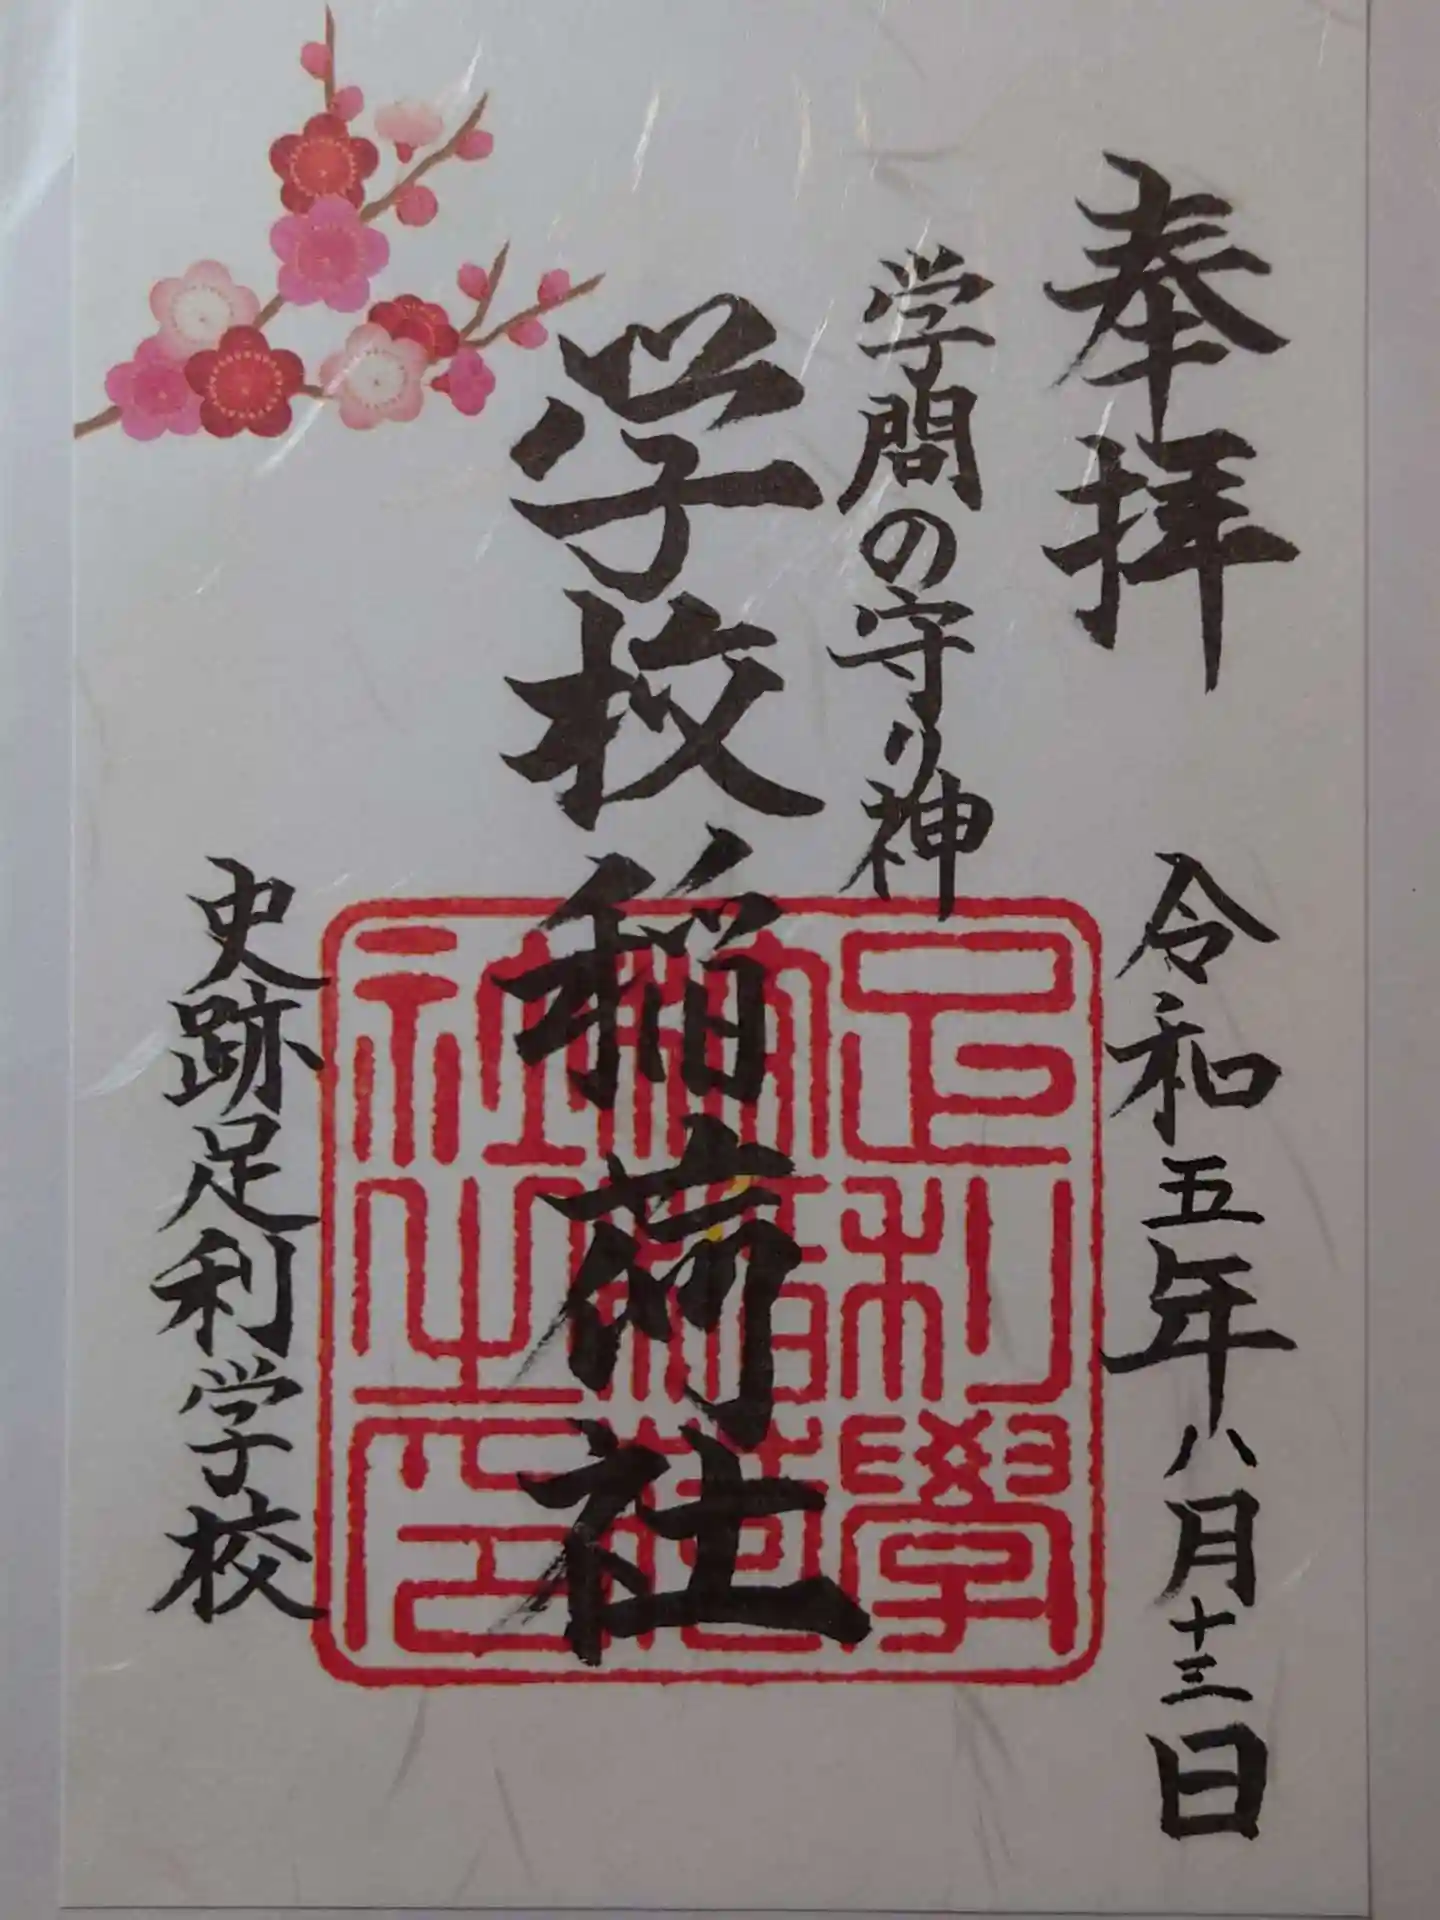 奉拝
令和五年八月十三日
学問の守り神
学校稲荷社
史跡足利学校
足利學
社之印